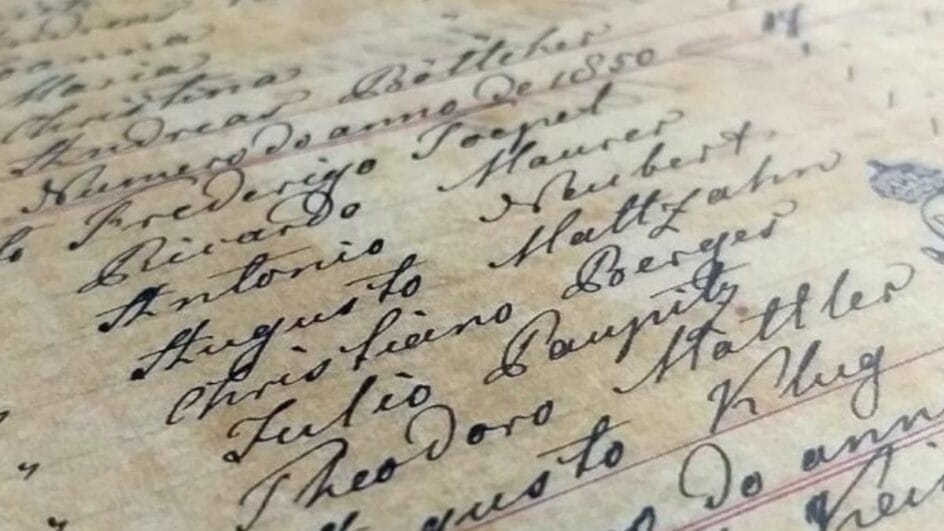 Maria
Christina
Andreas Böttcher
Numero do anno de 1850
Frederigo Toepel
Ricardo Maurer
Antonio Neubert
Augusto Mattzahn
Christiano Berger
Julio Paupitz
Theodoro Mattler
Augusto Klug
do anno